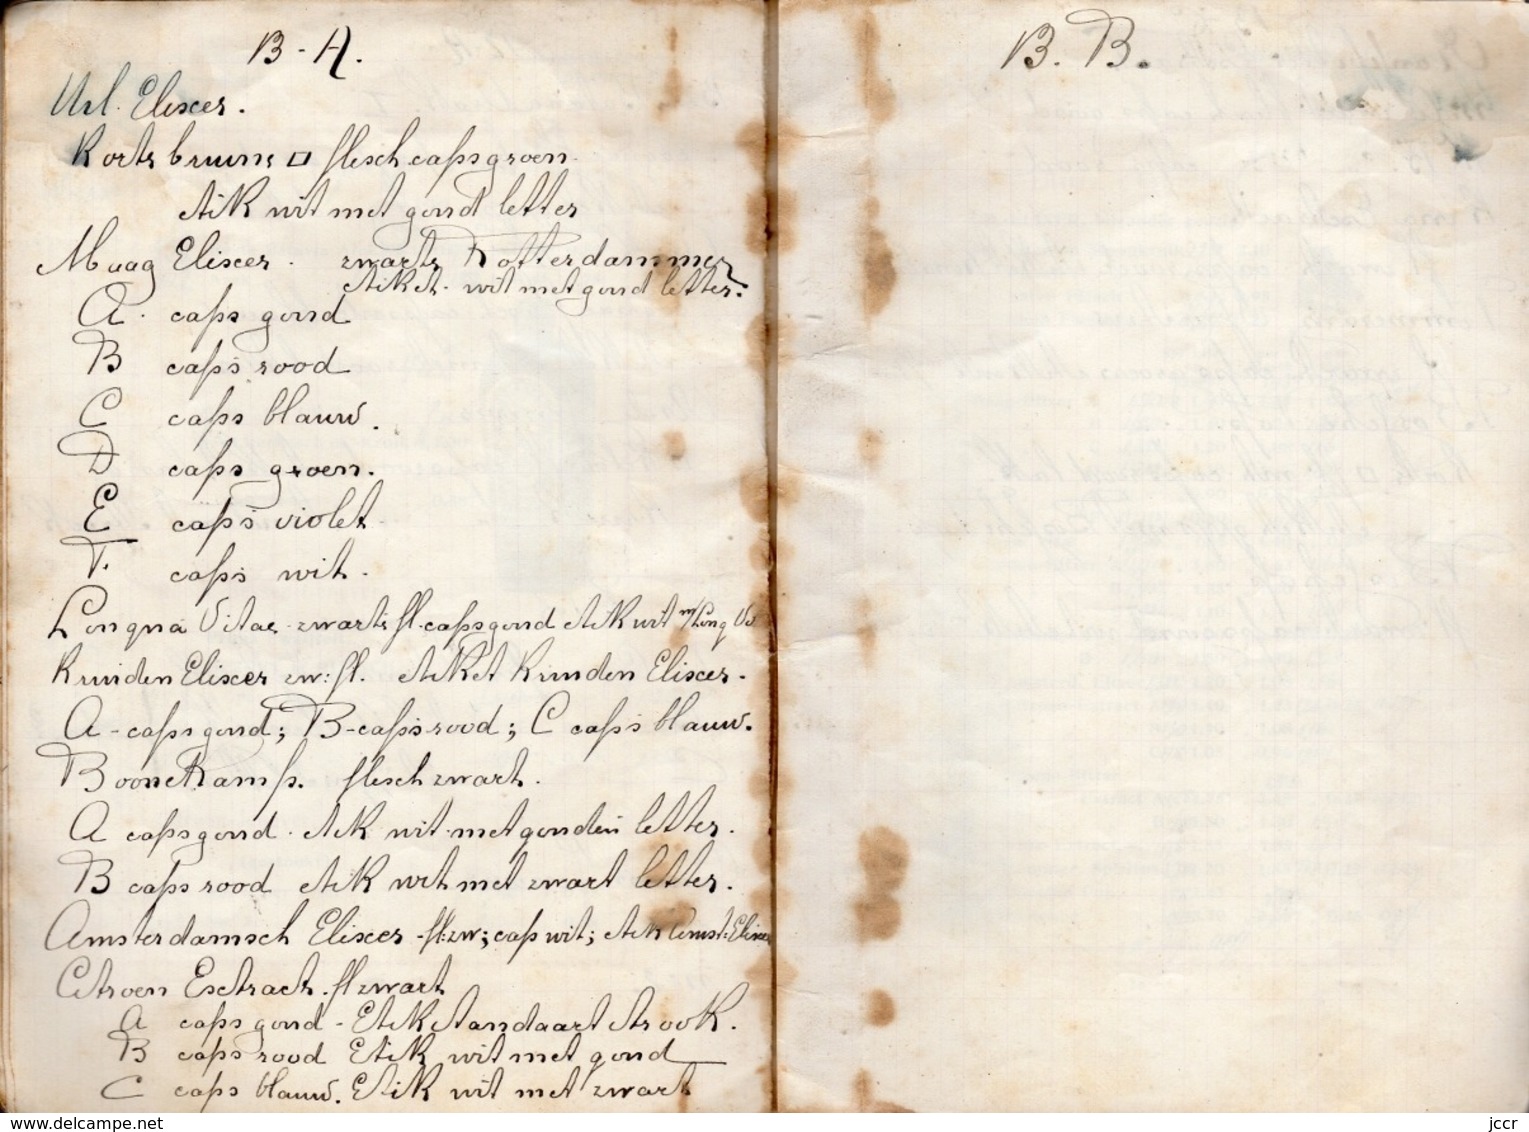 B-A.
Url. Elixer.
Korte bruine □ flesch caps groen.
etik wit met goud letter
Maag Elixer. zwarte Rotterdammer
etiket wit met goud letter.
A. caps goud
B caps rood
C caps blauw.
D caps groen.
E caps violet
F. caps wit.
Longna Vitae zwarte fl. caps goud etik wit m/Long Va
Kruiden Elixer zw: fl. etiket Kruiden Elixer.
A - caps goud; B - caps rood; C caps blauw.
Boonekamp. flesch zwart.
A caps goud. etik wit met gouden letter.
B caps rood etik wit met zwart letter.
Amsterdamsch Elixer - fl: zw; caps wit; etik Amst: Elixer
Citroen Extract. fl zwart
A caps goud - Etik Standaart Strook.
B caps rood Etik wit met goud
C caps blauw. Etik wit met zwart
B. B.
www.delcampe.net
jccr